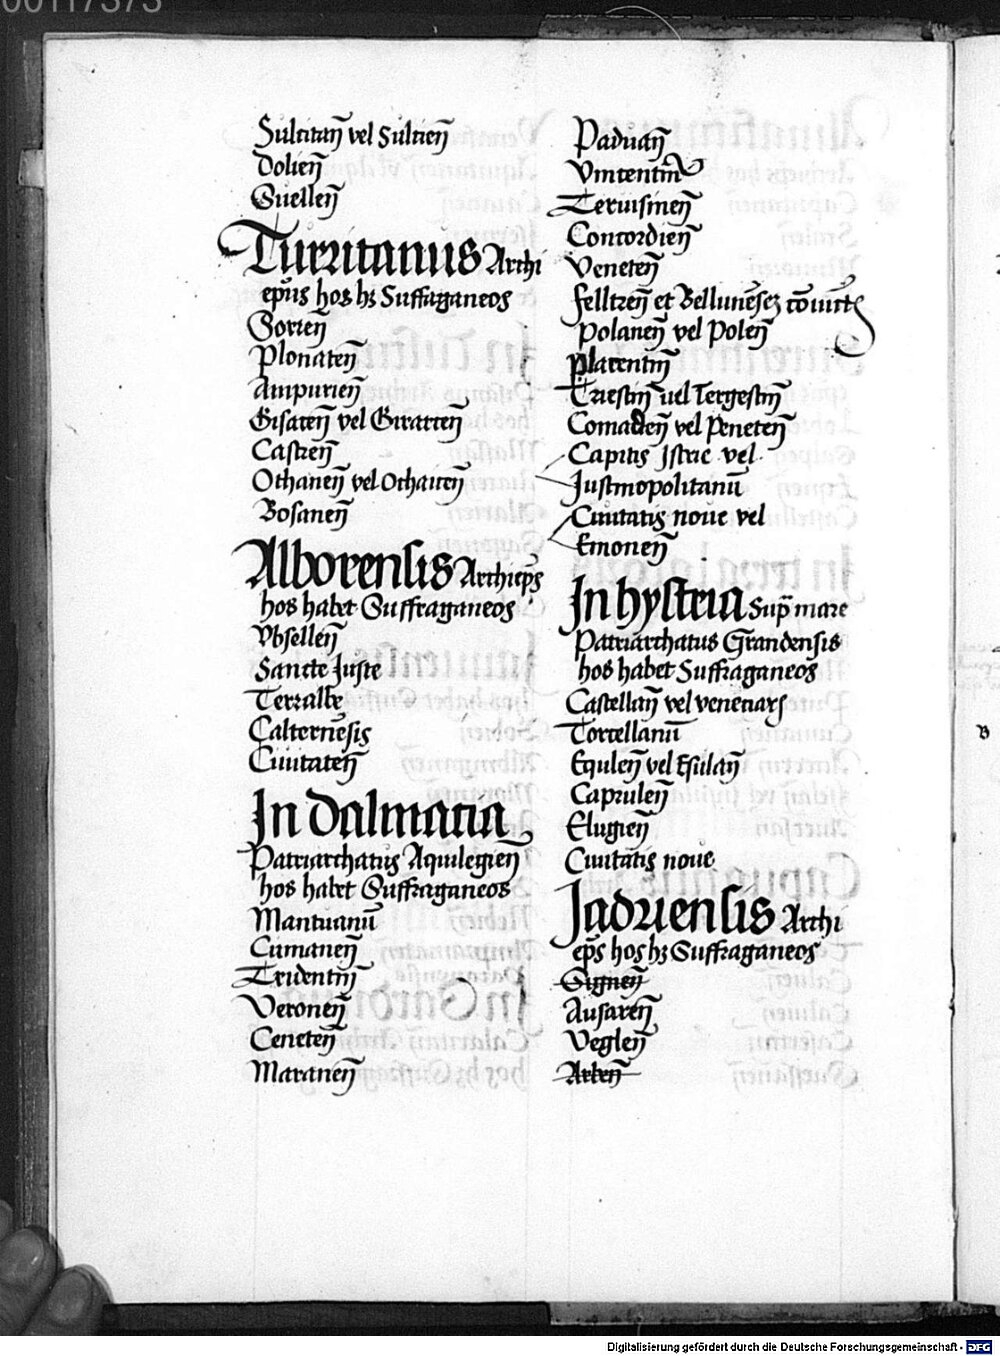 Sulcitan̄ vel Sulcien̄
Dolien̄
Suellen̄
Turritanus Archi
ep̄us hos hꝫ Suffraganeos
Sorren̄
Plonaten̄
Ampurien̄
Gisaren̄ vel Girarten̄
Castren̄
Othanen̄ vel Othairen̄
Bosanen̄
Alborensis Archiep̄s
hos habet Suffraganeos
Vbsellen̄
Sancte Juste
Terralbe
Calternēsis
Ciuitaten̄
In Dalmatia
Patriarchatus Aquilegien̄
hos habet Suffraganeos
Mantuanū
Cumanen̄
Tridentin̄
Veronen̄
Ceneten̄
Maranen̄
Paduan̄
Vincentin̄
Teruisinen̄
Concordien̄
Veneten̄
Felltren̄ et Bellunēseꝫ
Polanen̄ vel Polen̄
Placentin̄
Triestin̄ uel Tergestin̄
Comaclen̄ vel Peneten̄
Capitis Istrie vel
Justinopolitanū
Ciuitatis noue vel
Emonen̄
In hystria Sup̄ mare
Patriarchatus Grandensis
hos habet Suffraganeos
Castellan̄ vel veneciarꝫ
Torcellanū
Equlen̄ vel Esulan̄
Caprulen̄
Clugien̄
Ciuitatis noue
Jadriensis Archi
ep̄s hos hꝫ Suffraganeos
Signen̄
Ausaren̄
Veglen̄
Arben̄
B
Digitalisierung gefördert durch die Deutsche Forschungsgemeinschaft - DFG